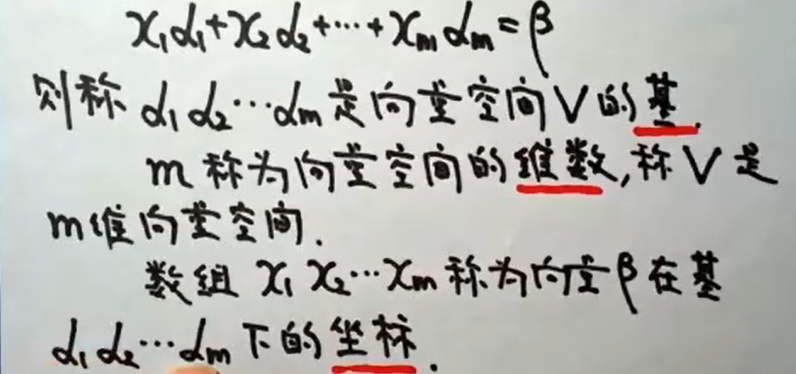 x₁α₁+x₂α₂+⋯+xₘαₘ=β
则称 α₁ α₂⋯αₘ 是向量空间V的基.
m 称为向量空间的维数,称V是
m维向量空间.
数组 x₁ x₂⋯xₘ 称为向量β在基
α₁ α₂⋯αₘ 下的坐标.